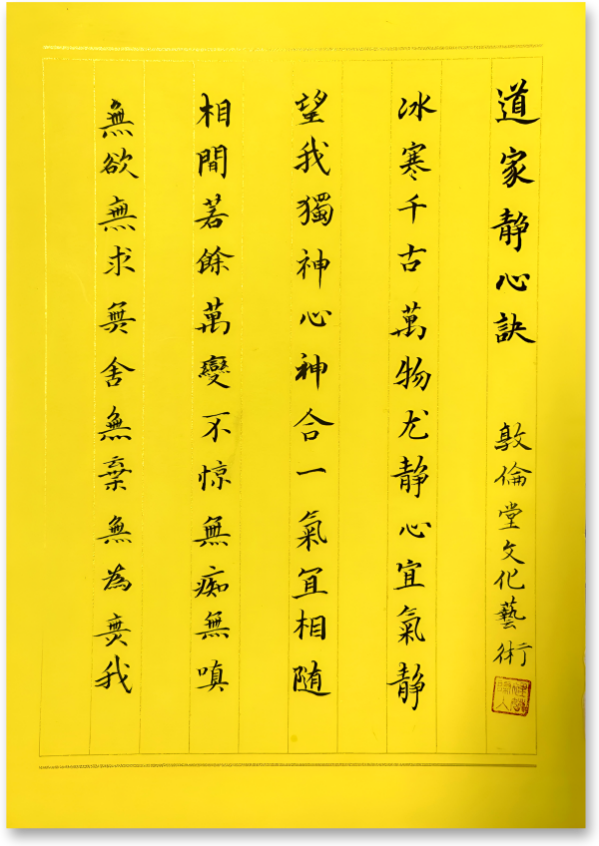 道家静心訣 敦倫堂文化藝術
冰寒千古萬物尤静心宜氣静
望我獨神心神合一氣宜相随
相間若餘萬變不惊無痴無嗔
無欲無求無舍無棄無為無我